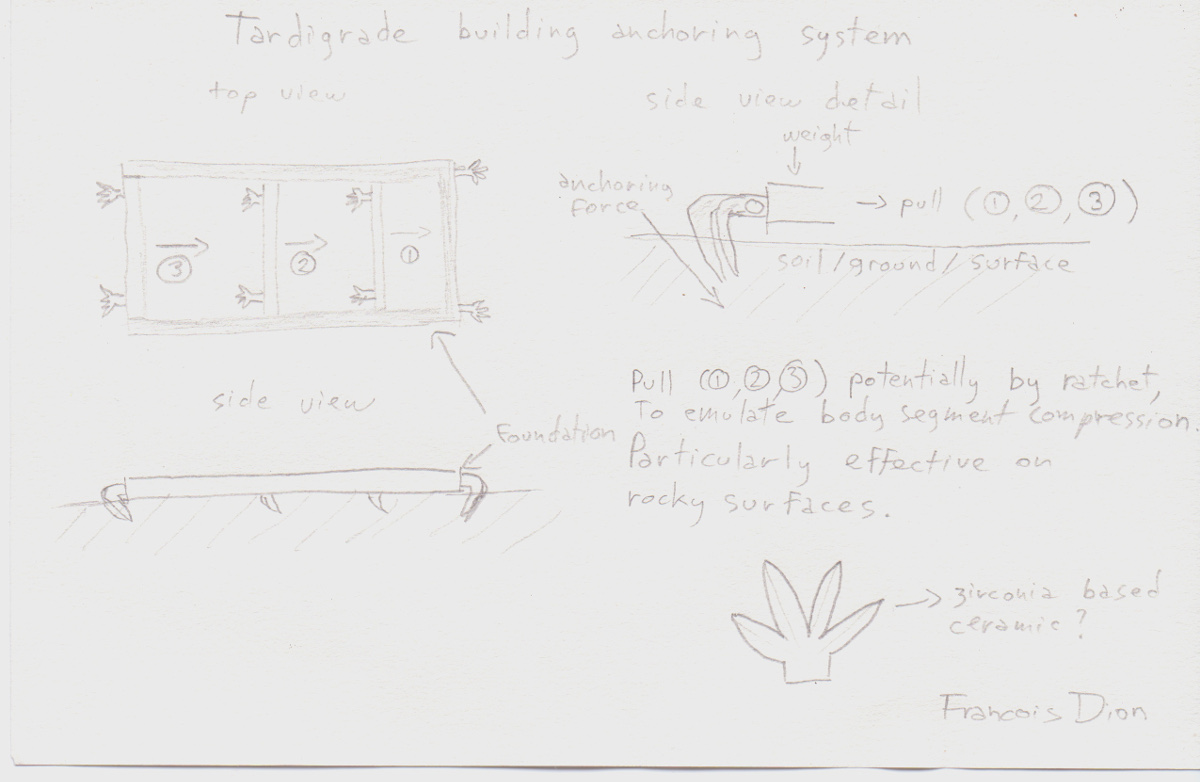 Tardigrade building anchoring system
top view
③
②
①
side view
Foundation
side view detail
weight
anchoring
force
→ pull (①, ②, ③)
soil/ground/surface
Pull (①,②,③) potentially by ratchet,
To emulate body segment compression.
Particularly effective on
rocky surfaces.
zirconia based
ceramic?
Francois Dion